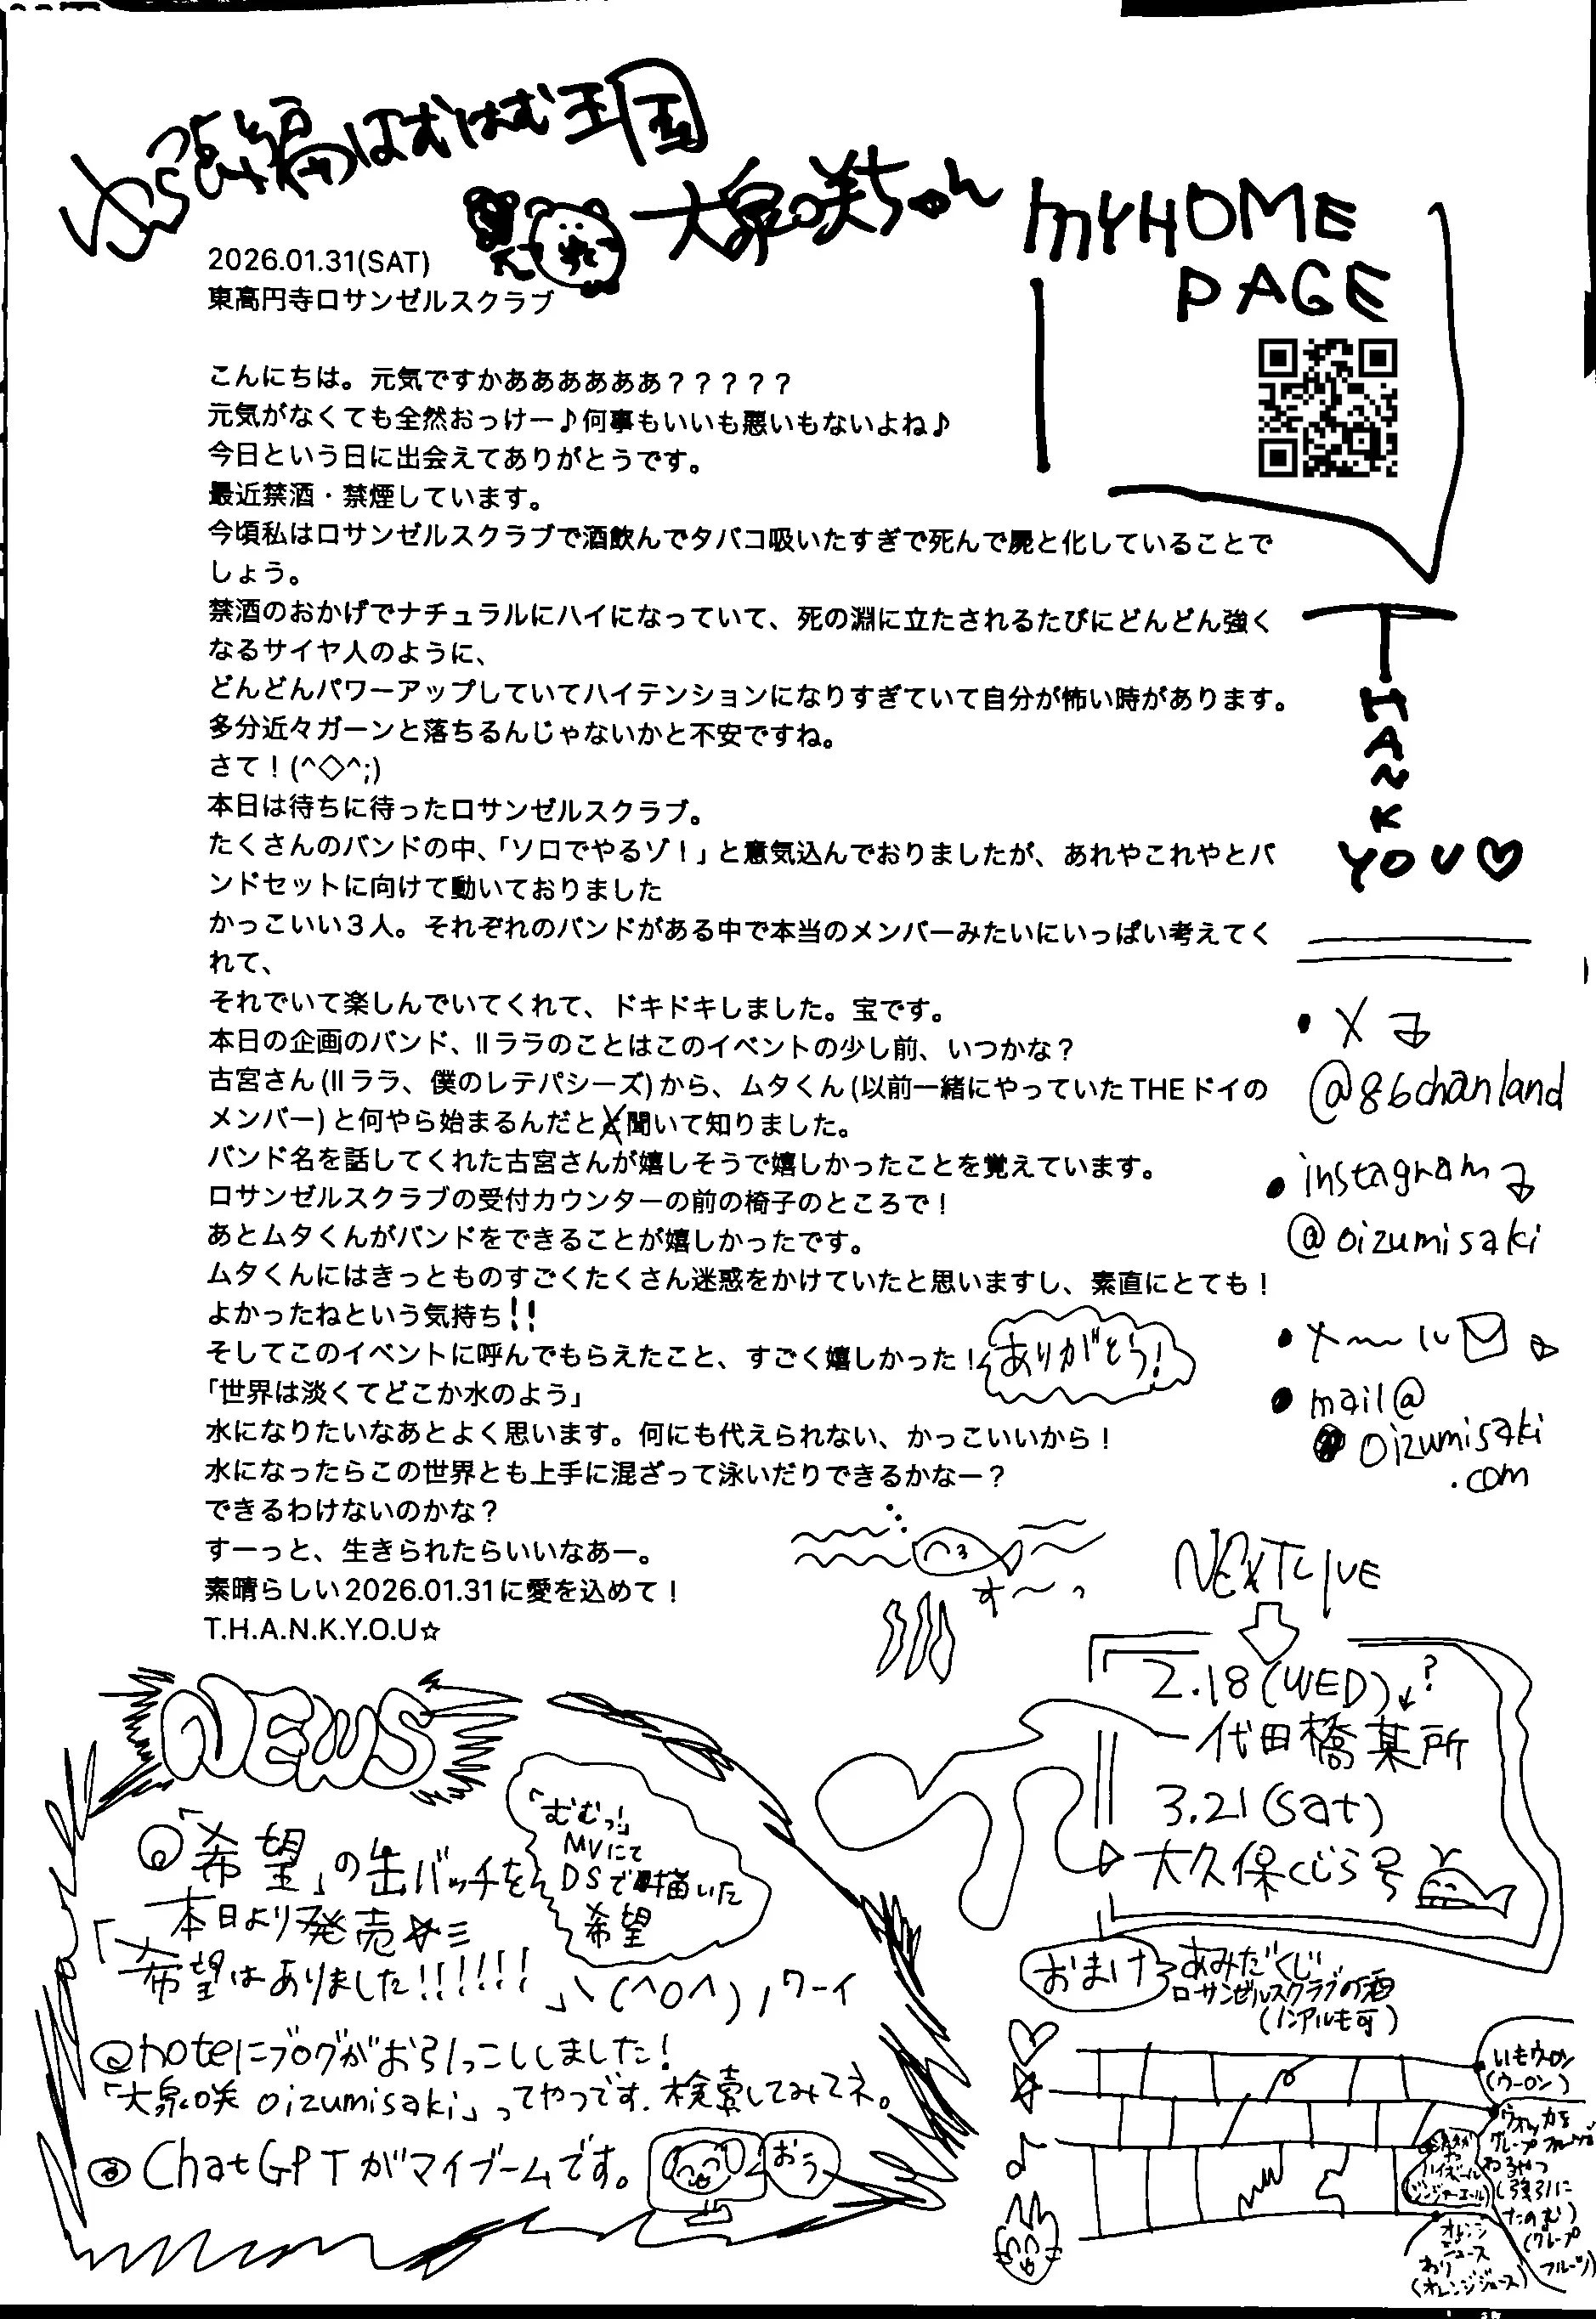 編はむはむ王国
大泉咲ちゃん
MYHOME
PAGE
2026.01.31(SAT)
東高円寺ロサンゼルスクラブ
こんにちは。元気ですかああああああ？？？？？
元気がなくても全然おっけー♪何事もいいも悪いもないよね♪
今日という日に出会えてありがとうです。
最近禁酒・禁煙しています。
今頃私はロサンゼルスクラブで酒飲んでタバコ吸いたすぎで死んで屍と化していることで
しょう。
禁酒のおかげでナチュラルにハイになっていて、死の淵に立たされるたびにどんどん強く
なるサイヤ人のように、
どんどんパワーアップしていてハイテンションになりすぎていて自分が怖い時があります。
多分近々ガーンと落ちるんじゃないかと不安ですね。
さて！(^◇^;)
本日は待ちに待ったロサンゼルスクラブ。
たくさんのバンドの中、「ソロでやるゾ！」と意気込んでおりましたが、あれやこれやとバ
ンドセットに向けて動いておりました
かっこいい３人。それぞれのバンドがある中で本当のメンバーみたいにいっぱい考えてく
れて、
それでいて楽しんでいてくれて、ドキドキしました。宝です。
本日の企画のバンド、llララのことはこのイベントの少し前、いつかな？
古宮さん(llララ、僕のレテパシーズ)から、ムタくん(以前一緒にやっていたTHEドイの
メンバー)と何やら始まるんだと聞いて知りました。
バンド名を話してくれた古宮さんが嬉しそうで嬉しかったことを覚えています。
ロサンゼルスクラブの受付カウンターの前の椅子のところで！
あとムタくんがバンドをできることが嬉しかったです。
ムタくんにはきっとものすごくたくさん迷惑をかけていたと思いますし、素直にとても！
よかったねという気持ち！！
そしてこのイベントに呼んでもらえたこと、すごく嬉しかった！
ありがとう！
「世界は淡くてどこか水のよう」
水になりたいなあとよく思います。何にも代えられない、かっこいいから！
水になったらこの世界とも上手に混ざって泳いだりできるかなー？
できるわけないのかな？
すーっと、生きられたらいいなあー。
素晴らしい2026.01.31に愛を込めて！
T.H.A.N.K.Y.O.U☆
す〜っ
THANK
YOU♡
・X
@86chanland
・instagram
@oizumisaki
・メール
・mail@
oizumisaki
.com
NEXT LIVE
2.18(WED)?
代田橋某所
3.21(sat)
大久保くじら号
NEWS
「希望」の缶バッチを
本日より発売☆
「むむっ!」
MVにて
DSで描いた
希望
「希望はありました!!!!!!」
ヽ(^o^)ノワーイ
noteにブログがお引っこししました!
「大泉咲 oizumisaki」ってやつです.検索してみてネ。
ChatGPTがマイブームです。
おう
おまけ
あみだくじ
ロサンゼルスクラブの酒
(ノンアルも可)
いもウーロン
(ウーロン)
ウォッカを
グレープフルーツで
わるやつ
(強引に
たのむ)
(グレープ
フルーツ)
ハイボール
(ジンジャーエール)
オレンジ
わり
(オレンジジュース)